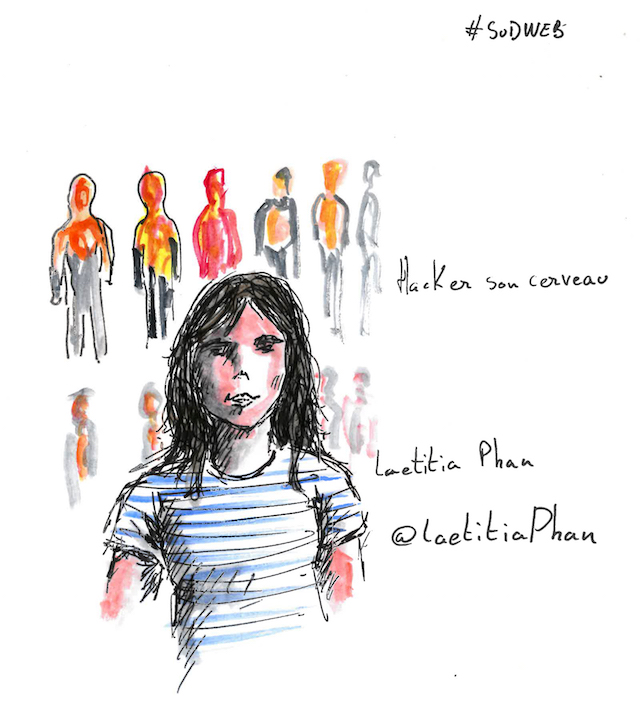 #SUDWEB
Hacker son cerveau
Laetitia Phan
@laetitiaPhan